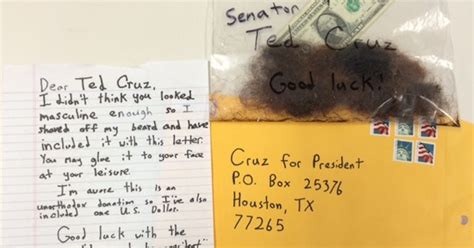 Dear Ted Cruz,
I didn't think you looked
masculine enough so I
shaved off my beard and have
included it with this letter.
You may glue it to your face
at your leisure.
I'm aware this is an
unorthodox donation so I've also
included one U.S. Dollar.
Good luck with the
Senator
Ted Cruz
Good luck!
Cruz for President
P.O. Box 25376
Houston, TX
77265